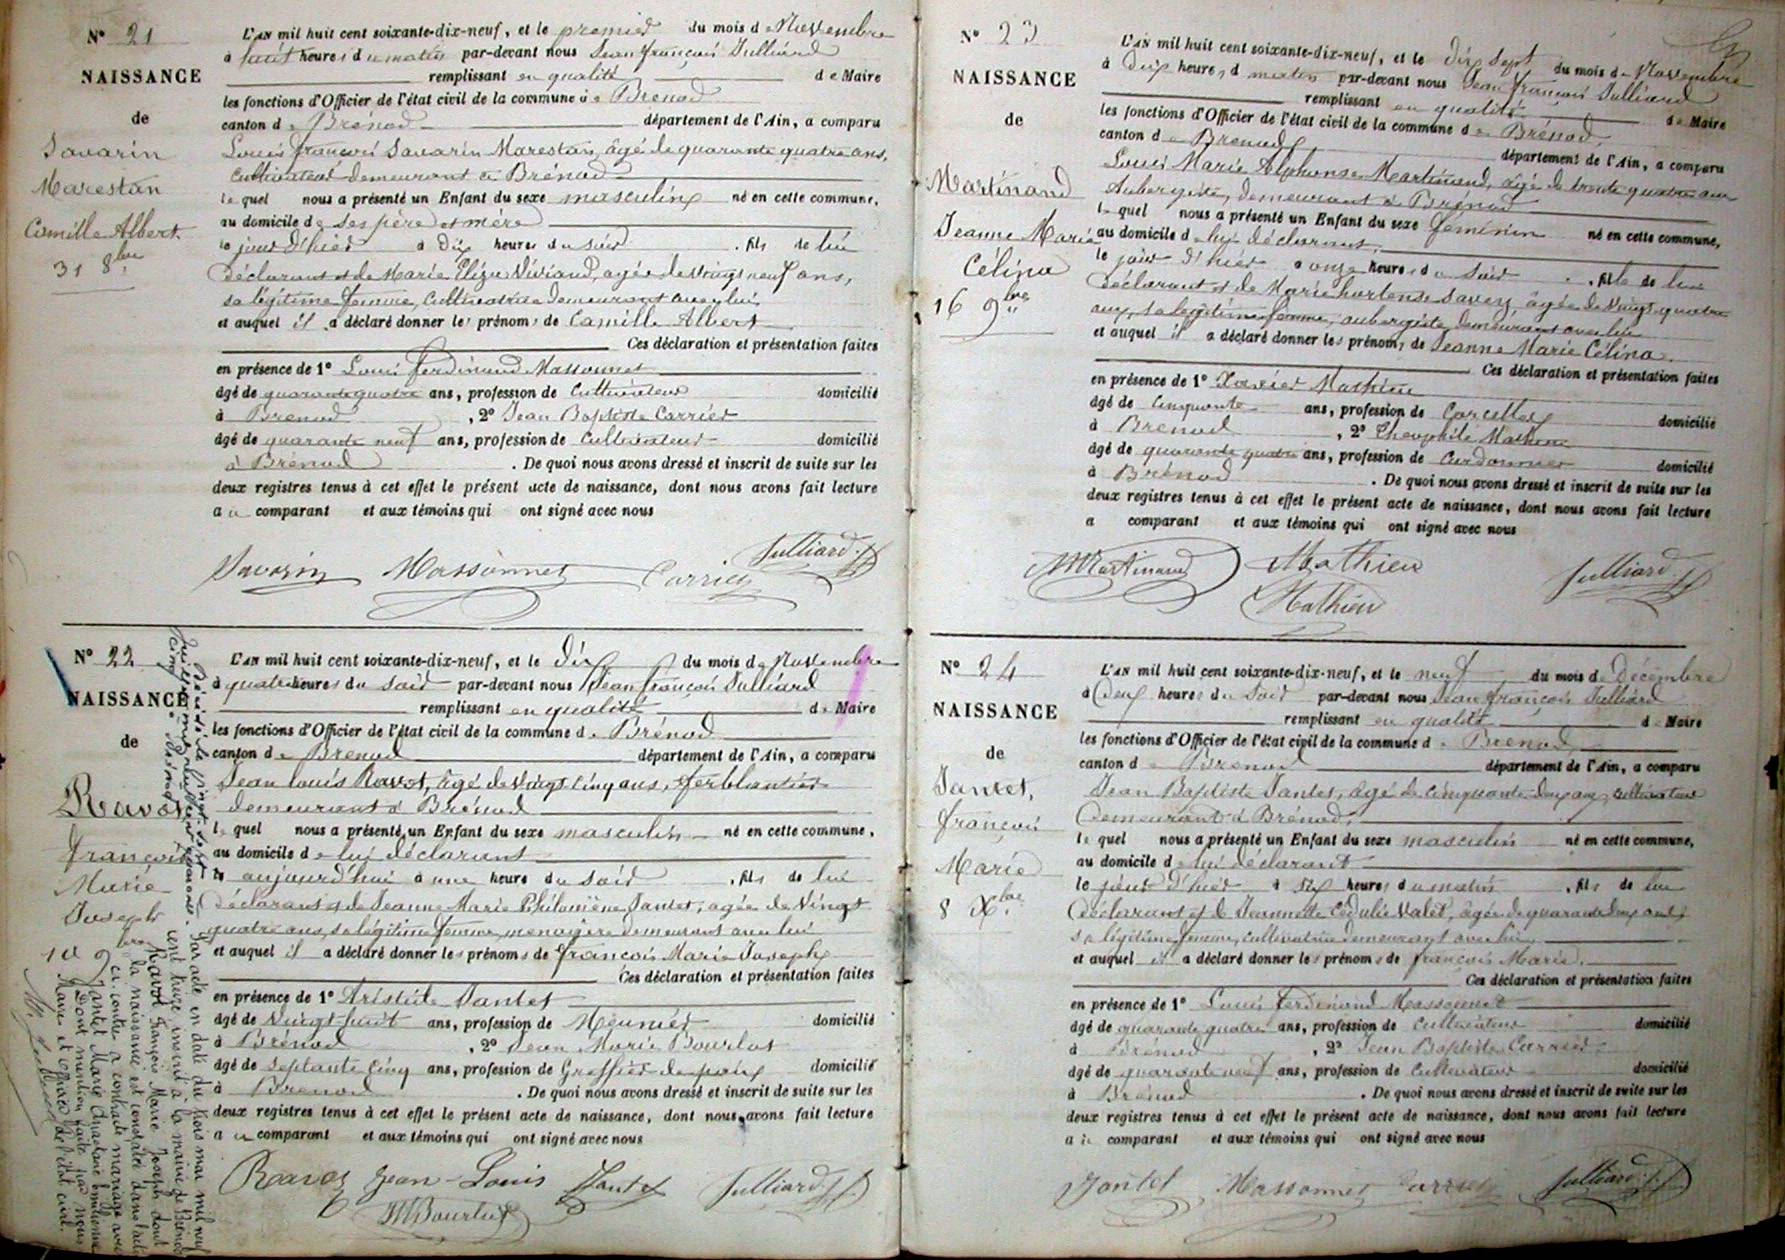 N° 21
NAISSANCE
de
Savarin
Marestan
Camille Albert
31 8bre
L'AN mil huit cent soixante-dix-neuf, et le premier du mois de Novembre
à huit heures du matin par-devant nous Jean françois Julliard
remplissant en qualité de Maire
les fonctions d'Officier de l'état civil de la commune de Brénod
canton de Brénod département de l'Ain, a comparu
Louis françois Savarin Marestan, âgé de quarante quatre ans,
cultivateur demeurant à Brénod
lequel nous a présenté un Enfant du sexe masculin né en cette commune,
au domicile de ses père et mère
le jour d'hier à dix heures du soir, fils de lui
déclarant et de Marie Eliza Viviand, agée de vingt neuf ans,
sa légitime femme, cultivatrice demeurant avec lui
et auquel il a déclaré donner les prénoms de Camille Albert
Ces déclaration et présentation faites
en présence de 1° Louis ferdinand Massonnet
âgé de quarante quatre ans, profession de cultivateur domicilié
à Brenod, 2° Jean Baptiste Carrier
âgé de quarante neuf ans, profession de cultivateur domicilié
à Brénod. De quoi nous avons dressé et inscrit de suite sur les
deux registres tenus à cet effet le présent acte de naissance, dont nous avons fait lecture
au comparant et aux témoins qui ont signé avec nous
Savarin Massonnet Carrier Julliard
N° 22
NAISSANCE
de
Ravot
françois
Marie
Joseph
10 9bre
L'AN mil huit cent soixante-dix-neuf, et le dix du mois de Novembre
à quatre heures du soir par-devant nous Jean françois Julliard
remplissant en qualité de Maire
les fonctions d'Officier de l'état civil de la commune de Brénod
canton de Brenod département de l'Ain, a comparu
Jean Louis Ravot, âgé de vingt cinq ans, ferblantier
demeurant à Brénod
lequel nous a présenté un Enfant du sexe masculin né en cette commune,
au domicile de lui déclarant
aujourd'hui à une heure du soir, fils de lui
déclarant et de Jeanne Marie Philomène Jantet, agée de vingt
quatre ans, sa légitime femme, menagère demeurant avec lui
et auquel il a déclaré donner les prénoms de françois Marie Joseph
Ces déclaration et présentation faites
en présence de 1° Aristide Jantet
âgé de vingt huit ans, profession de Meunier domicilié
à Brénod, 2° Jean Marie Bourlot
âgé de septante cinq ans, profession de Greffier de paix domicilié
à Brenod. De quoi nous avons dressé et inscrit de suite sur les
deux registres tenus à cet effet le présent acte de naissance, dont nous avons fait lecture
au comparant et aux témoins qui ont signé avec nous
Ravot Jean-Louis Jantet Julliard
Par acte en date du trois mai mil neuf
cent treize inscrit à la mairie de Brénod
Ravot François Marie Joseph dont
la naissance est constatée dans l'acte
ci-contre a contracté mariage avec
Jantet Marie
Dont mention faite par nous
Maire et officier de l'état civil.
N° 23
NAISSANCE
de
Martinand
Jeanne Marie
Célina
16 9bre
L'AN mil huit cent soixante-dix-neuf, et le dix sept du mois de Novembre
à dix heures du matin par-devant nous Jean françois Julliard
remplissant en qualité de Maire
les fonctions d'Officier de l'état civil de la commune de Brénod
canton de Brenod département de l'Ain, a comparu
Louis Marie Alphonse Martinand, âgé de trente quatre ans
Aubergiste, demeurant à Brénod
lequel nous a présenté un Enfant du sexe feminin né en cette commune,
au domicile de lui déclarant
le jour d'hier à onze heures du soir, fille de lui
déclarant et de Marie hortense Savey, âgée de vingt quatre
ans, sa légitime femme, aubergiste, demeurant avec lui
et auquel il a déclaré donner les prénoms de Jeanne Marie Célina
Ces déclaration et présentation faites
en présence de 1° Xavier Mathieu
âgé de cinquante ans, profession de domicilié
à Brenod, 2° Théophile Mathieu
âgé de quarante quatre ans, profession de Cordonnier domicilié
à Brénod. De quoi nous avons dressé et inscrit de suite sur les
deux registres tenus à cet effet le présent acte de naissance, dont nous avons fait lecture
a comparant et aux témoins qui ont signé avec nous
Martinand Mathieu Julliard
Mathieu
N° 24
NAISSANCE
de
Jantet,
françois
Marie
8 Xbre
L'AN mil huit cent soixante-dix-neuf, et le neuf du mois de Décembre
à deux heures du soir par-devant nous Jean françois Julliard
remplissant en qualité de Maire
les fonctions d'Officier de l'état civil de la commune de Brenod
canton de Brenod département de l'Ain, a comparu
Jean Baptiste Jantet, âgé de cinquante deux ans, cultivateur
demeurant à Brénod
lequel nous a présenté un Enfant du sexe masculin né en cette commune,
au domicile de lui déclarant
le jour d'hier à six heures du matin, fils de lui
déclarant et de Jeannette Valet, âgée de quarante deux ans,
sa légitime femme, cultivatrice demeurant avec lui
et auquel il a déclaré donner les prénoms de françois Marie
Ces déclaration et présentation faites
en présence de 1° Louis ferdinand Massonnet
âgé de quarante quatre ans, profession de cultivateur domicilié
à Brénod, 2° Jean Baptiste Carrier
âgé de quarante neuf ans, profession de cultivateur domicilié
à Brénod. De quoi nous avons dressé et inscrit de suite sur les
deux registres tenus à cet effet le présent acte de naissance, dont nous avons fait lecture
au comparant et aux témoins qui ont signé avec nous
Jantet Massonnet Carrier Julliard